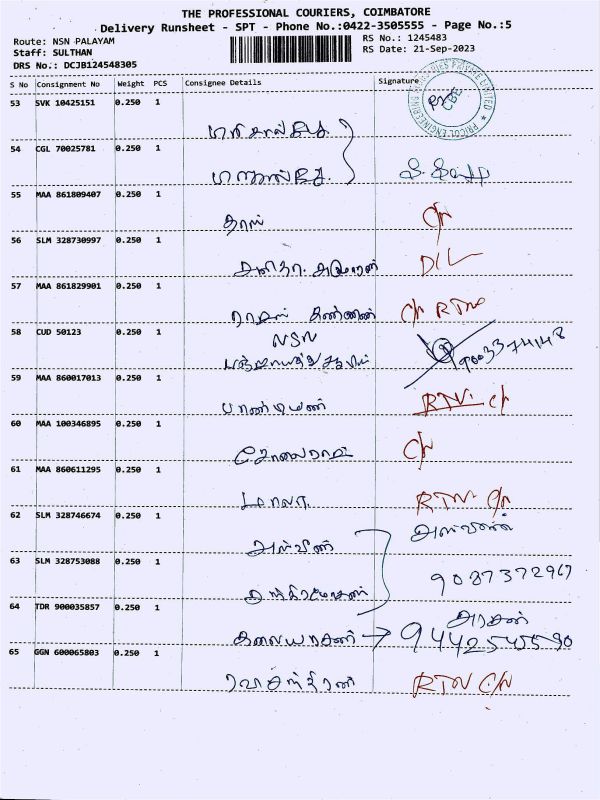 THE PROFESSIONAL COURIERS, COIMBATORE
Delivery Runsheet - SPT - Phone No.:0422-3505555 - Page No.:5
Route: NSN PALAYAM
Staff: SULTHAN
DRS No.: DCJB124548305
RS No.: 1245483
RS Date: 21-Sep-2023
S No Consignment No Weight PCS Consignee Details Signature
PRICOL ENGINEERING INDUSTRIES PRIVATE LIMITED
CBE
53 SVK 10425151 0.250 1
54 CGL 70025781 0.250 1
55 MAA 861809407 0.250 1
தாஸ் C/N
56 SLM 328730997 0.250 1
D/L
57 MAA 861829901 0.250 1
கண்ணன் C/N RTN
58 CUD 50123 0.250 1
NSN
9003374148
59 MAA 860017013 0.250 1
பாண்டியன் RTN C/N
60 MAA 100346895 0.250 1
C/N
61 MAA 860611295 0.250 1
மாலா RTN C/N
62 SLM 328746674 0.250 1
அஸ்வின்
63 SLM 328753088 0.250 1
9087372967
64 TDR 900035857 0.250 1
அரசன்
கலையரசன் → 9442545590
65 GGN 600065803 0.250 1
ரவிசந்திரன் RTN C/N